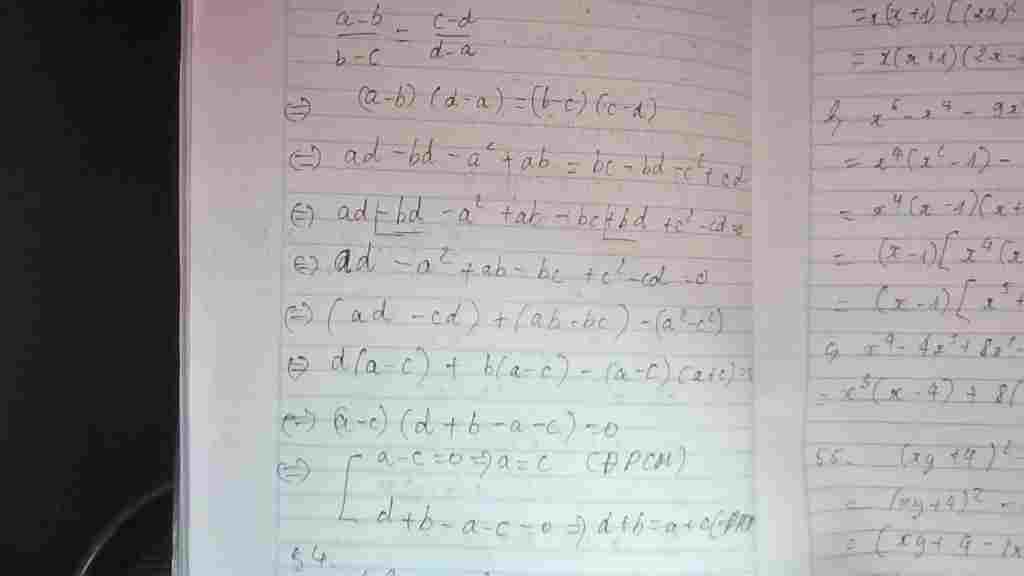 a-b/b-c = c-d/d-a
⇔ (a-b)(d-a) = (b-c)(c-d)
⇔ ad - bd - a² + ab = bc - bd - c² + cd
⇔ ad - bd - a² + ab - bc + bd + c² - cd =
⇔ ad - a² + ab - bc + c² - cd = 0
⇔ (ad - cd) + (ab - bc) - (a² - c²)
⇔ d(a-c) + b(a-c) - (a-c)(a+c) =
⇔ (a-c)(d+b-a-c) = 0
⇔ [ a-c=0 ⇒ a=c (ĐPCM)
d+b-a-c=0 ⇒ d+b=a+c (ĐPCM
54.
=x(x+1)[(2x)²
= x(x+1)(2x-
b, x⁶ - x⁴ - 9x
= x⁴(x²-1) -
= x⁴(x-1)(x+
= (x-1)[x⁴(x
= (x-1)[x⁵+
x⁴ - 4x³ + 8x² -
= x³(x-4) + 8(
55. (xy+4)² -
= (xy+4)² -
= (xy+4-2x